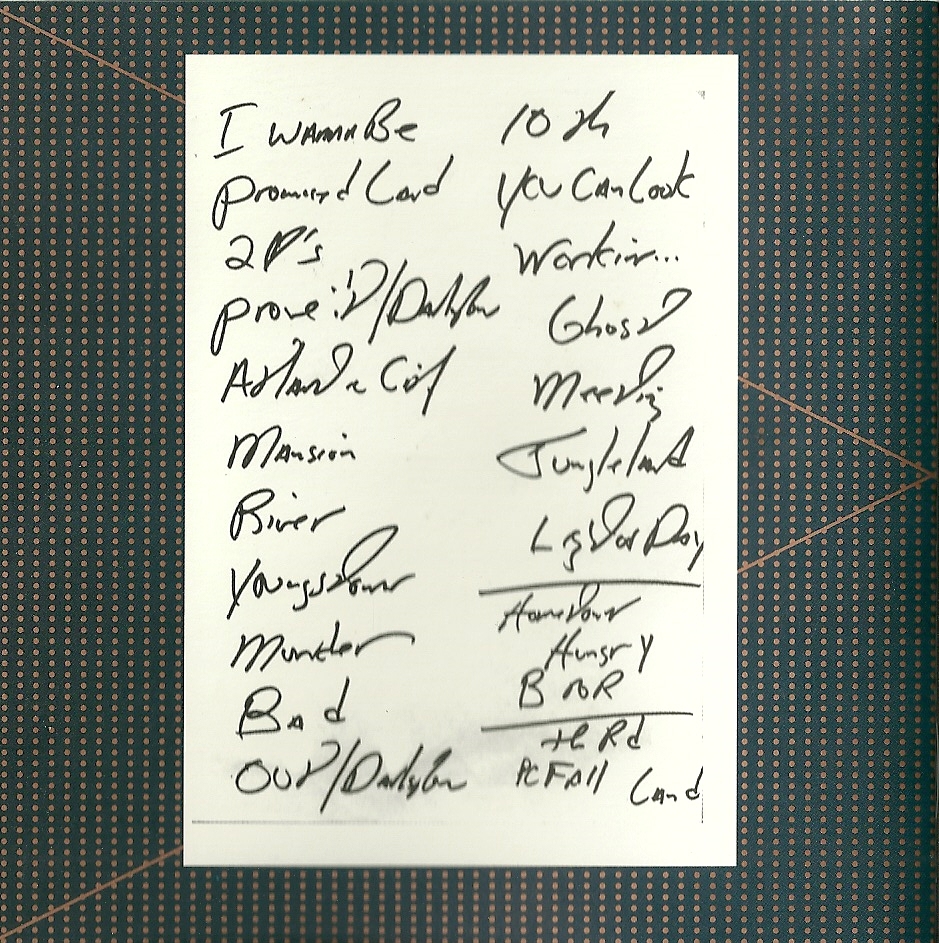 I wanna Be
Promised Land
2 ♥'s
Prove it/Darlington
Atlantic City
Mansion
River
Youngstown
Murder
Bad
Out/Darlington
10th
You Can Look
Workin...
Ghost
Meeting
Jungleland
Light of Day
Hometown
Hungry
B to R
th Rd
Land